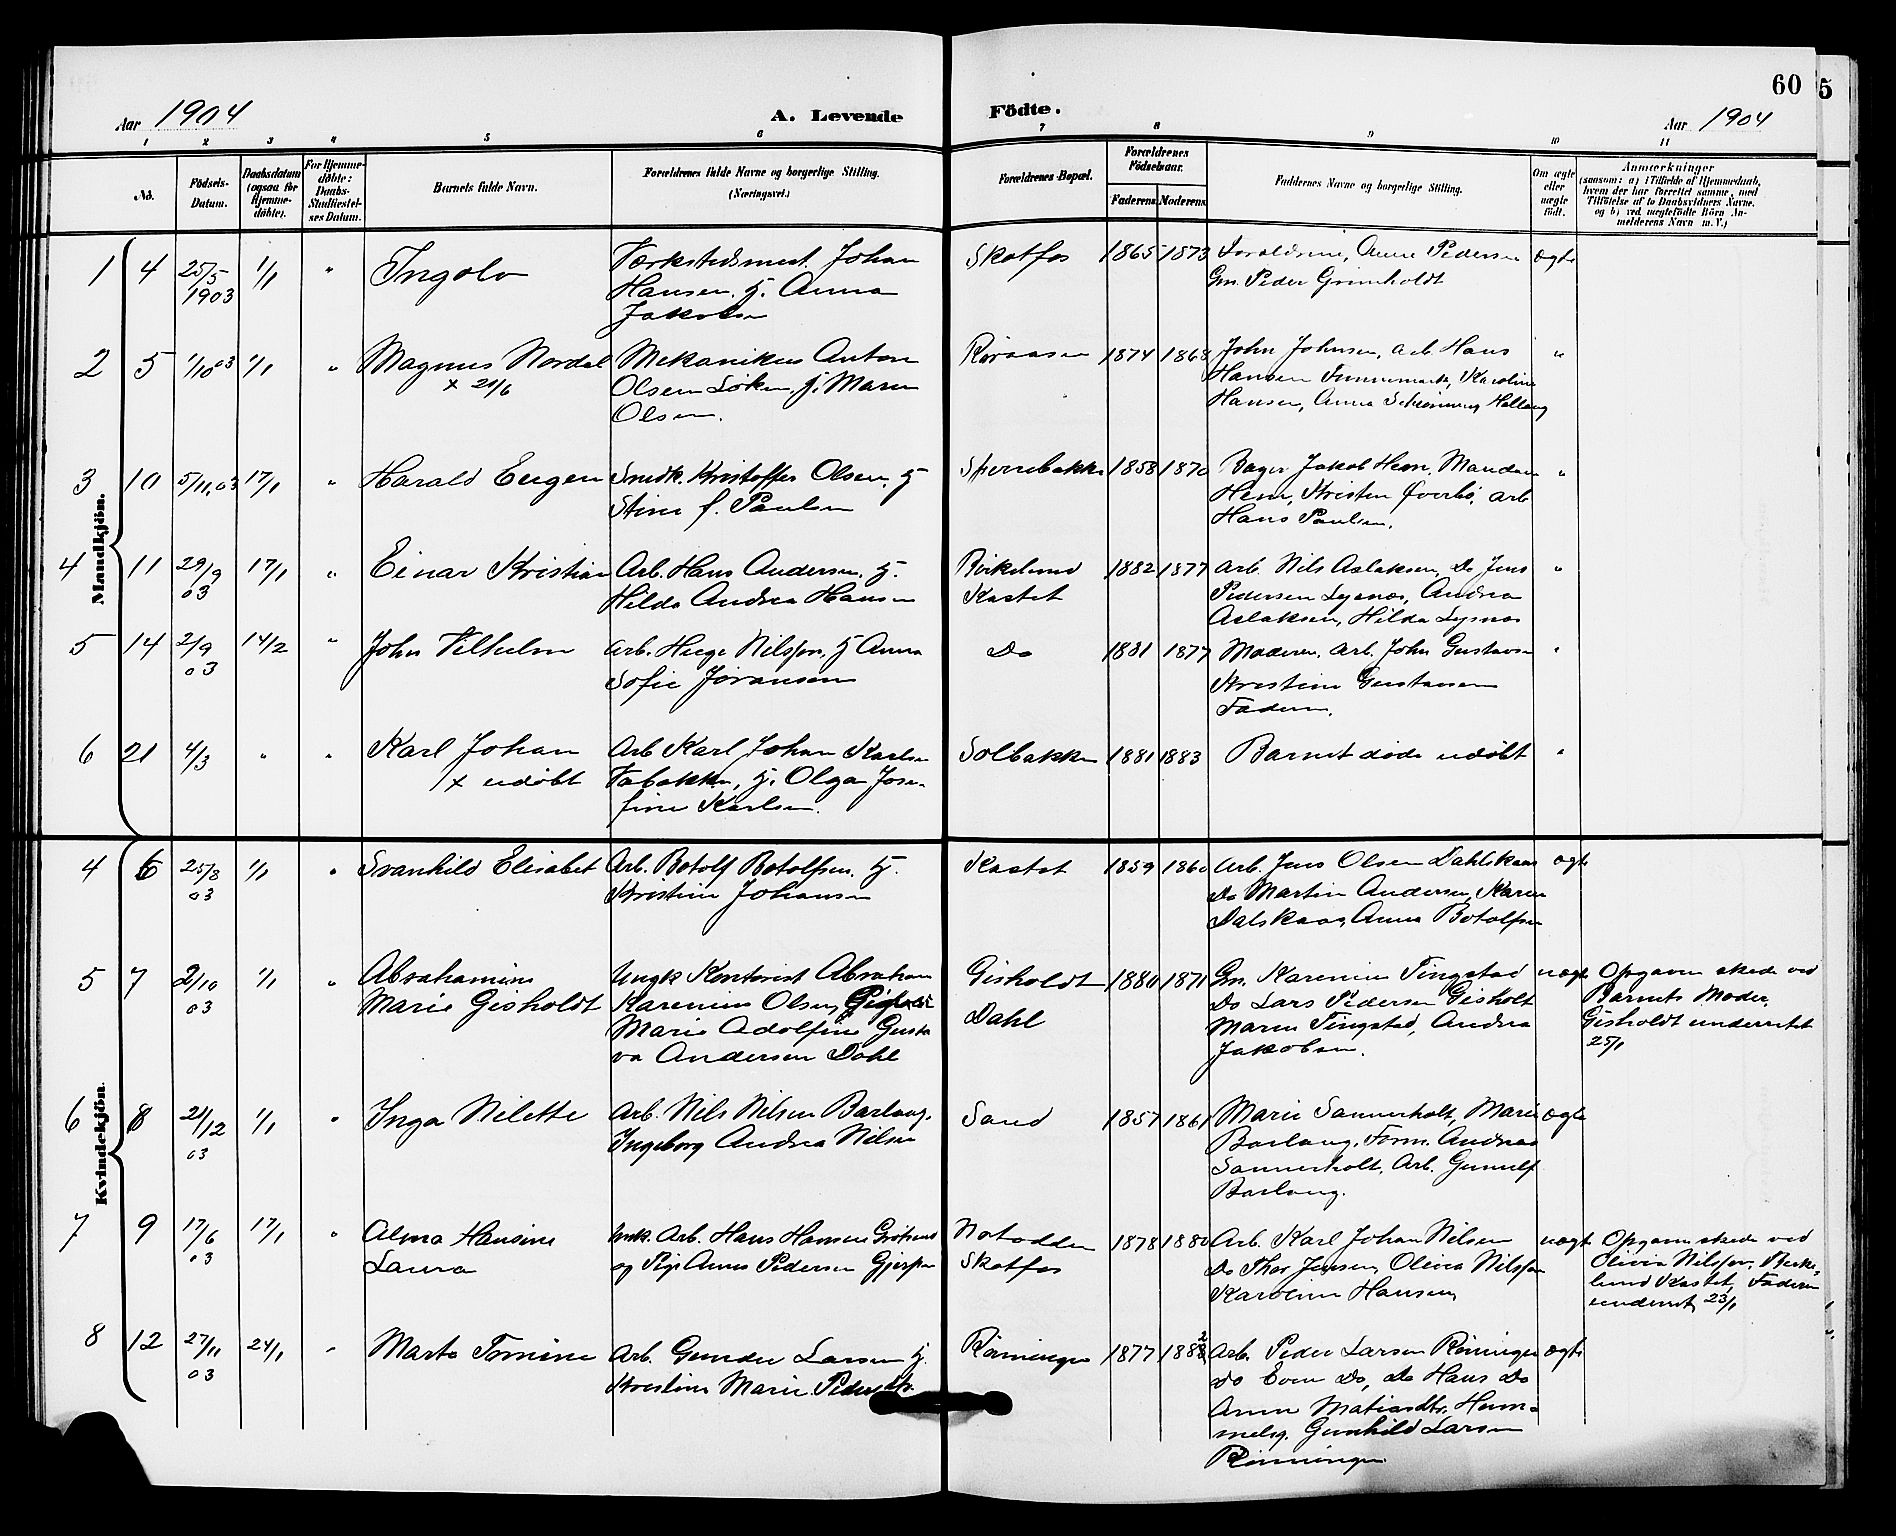 60
5
Aar 1904
A. Levende
Födte.
Aar 1904
1 2 3 4 5 6 7 8 9 10 11
No.
Födsels-Datum.
Daabsdatum (ogsaa for Hjemme-döbte).
For Hjemme-döbte: Daabs-Stadfæstel-ses Datum.
Barnets fulde Navn.
Forældrenes fulde Navne og borgerlige Stilling. (Næringsvei.)
Forældrenes Bopæl.
Forældrenes Födselsaar.
Faderens Moderens
Faddernes Navne og borgerlige Stilling.
Om ægte eller uægte födt.
Anmærkninger (saasom: a) i Tilfælde af Hjemmedaab, hvem der har forrettet samme, med Tilföielse af to Daabsvidners Navne, og b) ved uægtefödte Börn An-melderens Navn m. V.)
Mandkjön.
1 4 25/5 1903 1/1 " Ingolv
Værkstedsmest. Johan
Hansen, Hj. Anna
Jakobsen
Skotfos 1865 1873
Forældrene, Anne Pedersen
Gm. Peder Grimholdt
ægte
2 5 1/10 03 1/1 " Magnus Nordal
x 21/6
Mekanikus Anton
Olsen Löken, Hj. Maren
Olsen.
Röraasen 1874 1868
John Johnsen, Arb. Hans
Hansen, Karoline
Hansen, Anna
"
3 10 5/11.03 17/1 " Harald Eugen
Snedk. Kristoffer Olsen, Hj
Stine f. Paulsen
Sperrebakke 1858 1870
Bager Jakob Hem,
Hem, Kristen Överbö, Arb
Hans Paulsen.
"
4 11 29/9 03 17/1 " Einar Kristian
Arb. Hans Andersen, Hj.
Hilda Andrea Hansen
Birkelund
Kastet
1882 1877
Arb. Nils Aslaksen, Do Jens
Pedersen Lysnæs, Andrea
Aslaksen, Hilda Lysnæs
"
5 14 2/9 03 14/2 " John Vilhelm
Arb. Helge Nilssen, Hj Anna
Sofie Jöransen
Do 1881 1877
Moderen, Arb. John Gustavsen
Kristine Gustavsen
Faderen.
"
6 21 4/3 " " Karl Johan
x udöbt
Arb Karl Johan Karlsen
Vabakken, Hj. Olga Jose-
fine Karlsen.
Solbakken 1881 1883
Barnet döde udöbt
"
Kvindekjön.
4 6 25/8 03 1/1 " Svanhild Elisabet
Arb. Botolf Botolfsen, Hj.
Kristine Johansen
Kastet 1859 1860
Arb. Jens Olsen Dahlskaas
Do Martin Andersen, Karen
Dalskaas, Anna Botolfsen
ægte
5 7 2/10 03 1/1 " Abrahamine
Marie Gisholdt
Ungk Kontorist Abraham
Karenius Olsen Gisholdt
Marie Adolfine Gusta
va Andersen Dahl
Gisholdt
Dahl
1880 1871
Gm. Karenius Tingstad
Do Lars Pedersen Gisholt
Maren Tingstad, Andrea
Jakobsen.
uægte
Opgaven skede ved
Barnets Moder,
Gisholdt underrettet
25/1
6 8 21/12 03 1/1 " Inga Nilette
Arb. Nils Nilsen Barlaug,
Ingeborg Andrea Nilsen
Sand 1857 1861
Marie Sannerholt, Marie
Barlaug, Form. Andreas
Sannerholt, Arb. Gunulf
Barlaug.
ægte
7 9 17/6 03 17/1 " Alma Hansine
Laura
Unk. Arb. Hans Hansen
og Pige Anne Pedersen Gjerpen
Notodden
Skotfos
1878 1880
Arb. Karl Johan Nilsen
Do Thor Jensen, Olivia Nilssen
Karoline Hansen
uægte
Opgaven skede ved
Olivia Nilssen, Birke-
lund Kastet, Faderen
underret. 23/1
8 12 27/11 03 24/1 " Marta Tomine
Arb. Gunder Larsen Hj.
Kristine Marie Pedersdtr.
Rönningen 1877 1882
Arb. Peder Larsen Rönningen
Do Even Do, Do Hans Do
Anne Matiasdtr.
Gunhild Larsen
Rönningen
ægte